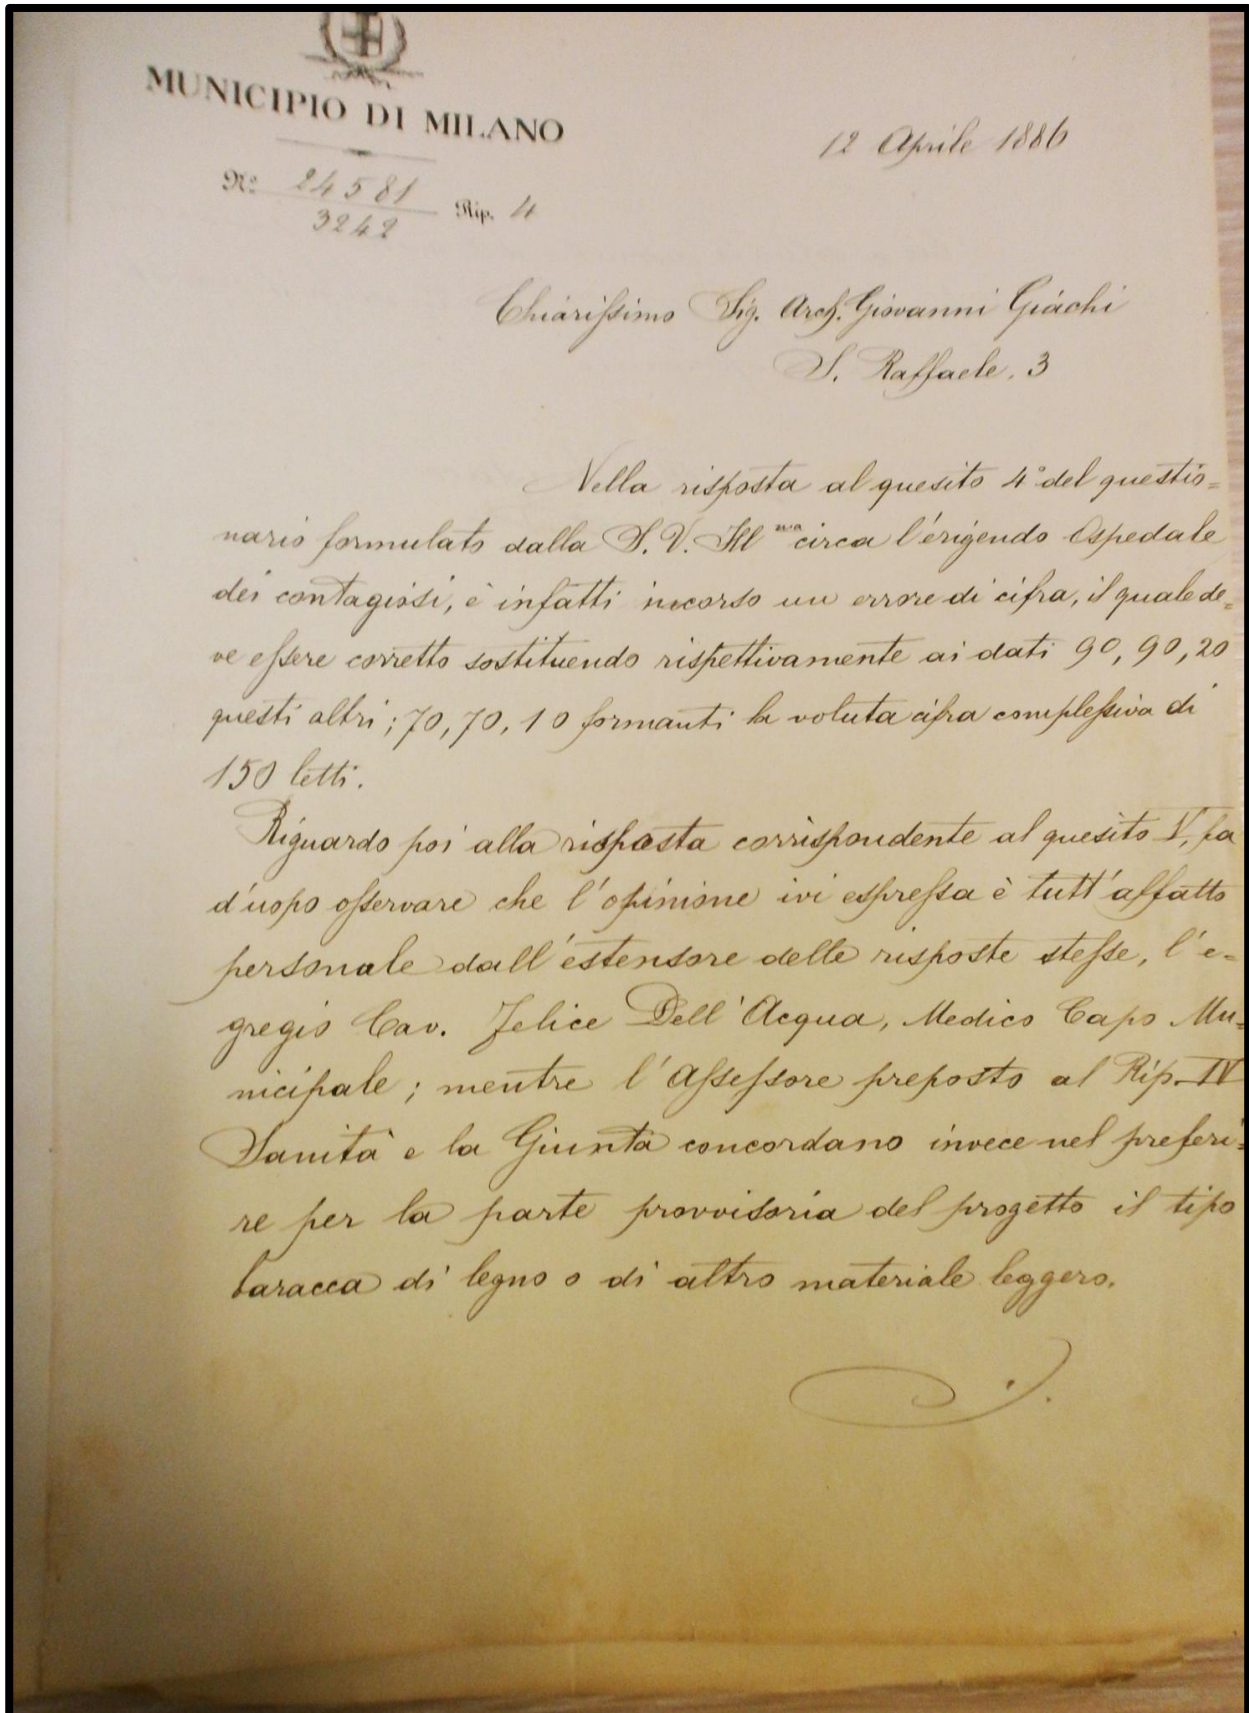 MUNICIPIO DI MILANO
12 Aprile 1886
Nº 24581 Rip. 4
3242
Chiarissimo Sig. Arch. Giovanni Giachi
S. Raffaele. 3
Nella risposta al quesito 4° del questio=
nario formulato dalla S. V. Ill ma circa l'erigendo Ospedale
dei contagiosi, è infatti incorso un errore di cifra, il quale de=
ve essere corretto sostituendo rispettivamente ai dati 90, 90, 20
questi altri; 70, 70, 10 formanti la voluta cifra complessiva di
150 letti.
Riguardo poi alla risposta corrispondente al quesito V, fa
d'uopo osservare che l'opinione ivi espressa è tutt'affatto
personale dall'estensore delle risposte stesse, l'e=
gregio Cav. Felice Dell'Acqua, Medico Capo Mu=
nicipale; mentre l'Assessore preposto al Rip. IV
Sanità e la Giunta concordano invece nel preferi=
re per la parte provvisoria del progetto il tipo
baracca di legno o di altro materiale leggero.